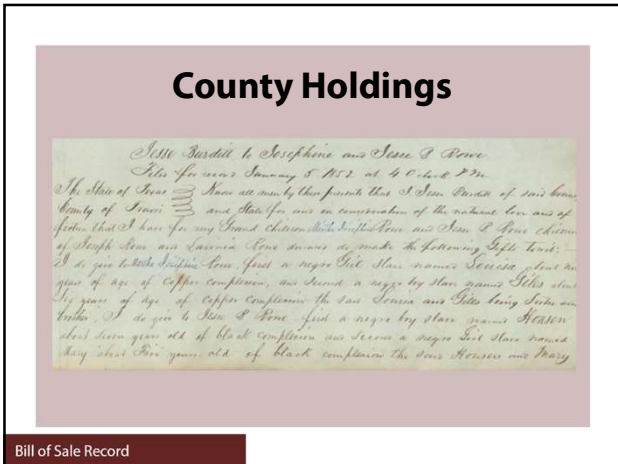 County Holdings
Jesse Burditt to Josephine and Jesse P Rowe
Filed for record January 5 1852 at 4 O clock P M
The State of Texas Know all men by these presents that I Jesse Burditt of said
County of Travis and State for and in consideration of the natural love and af
fection that I have for my Grand children Rowe and Jesse P Rowe children
of Joseph Rowe and Lavinia Rowe do make the following Gifts Towit:
I do give to Rowe, first a negro Girl slave named Louisa about
years of age of Copper complexion, and second a negro boy slave named Giles about
Six years of age of Copper complexion the said Louisa and Giles being Sister and
brother, I do give to Jesse P Rowe first a negro boy slave named
about Seven years old of black complexion and second a negro Girl slave named
Mary about Five years old of black complexion the said and Mary
Bill of Sale Record